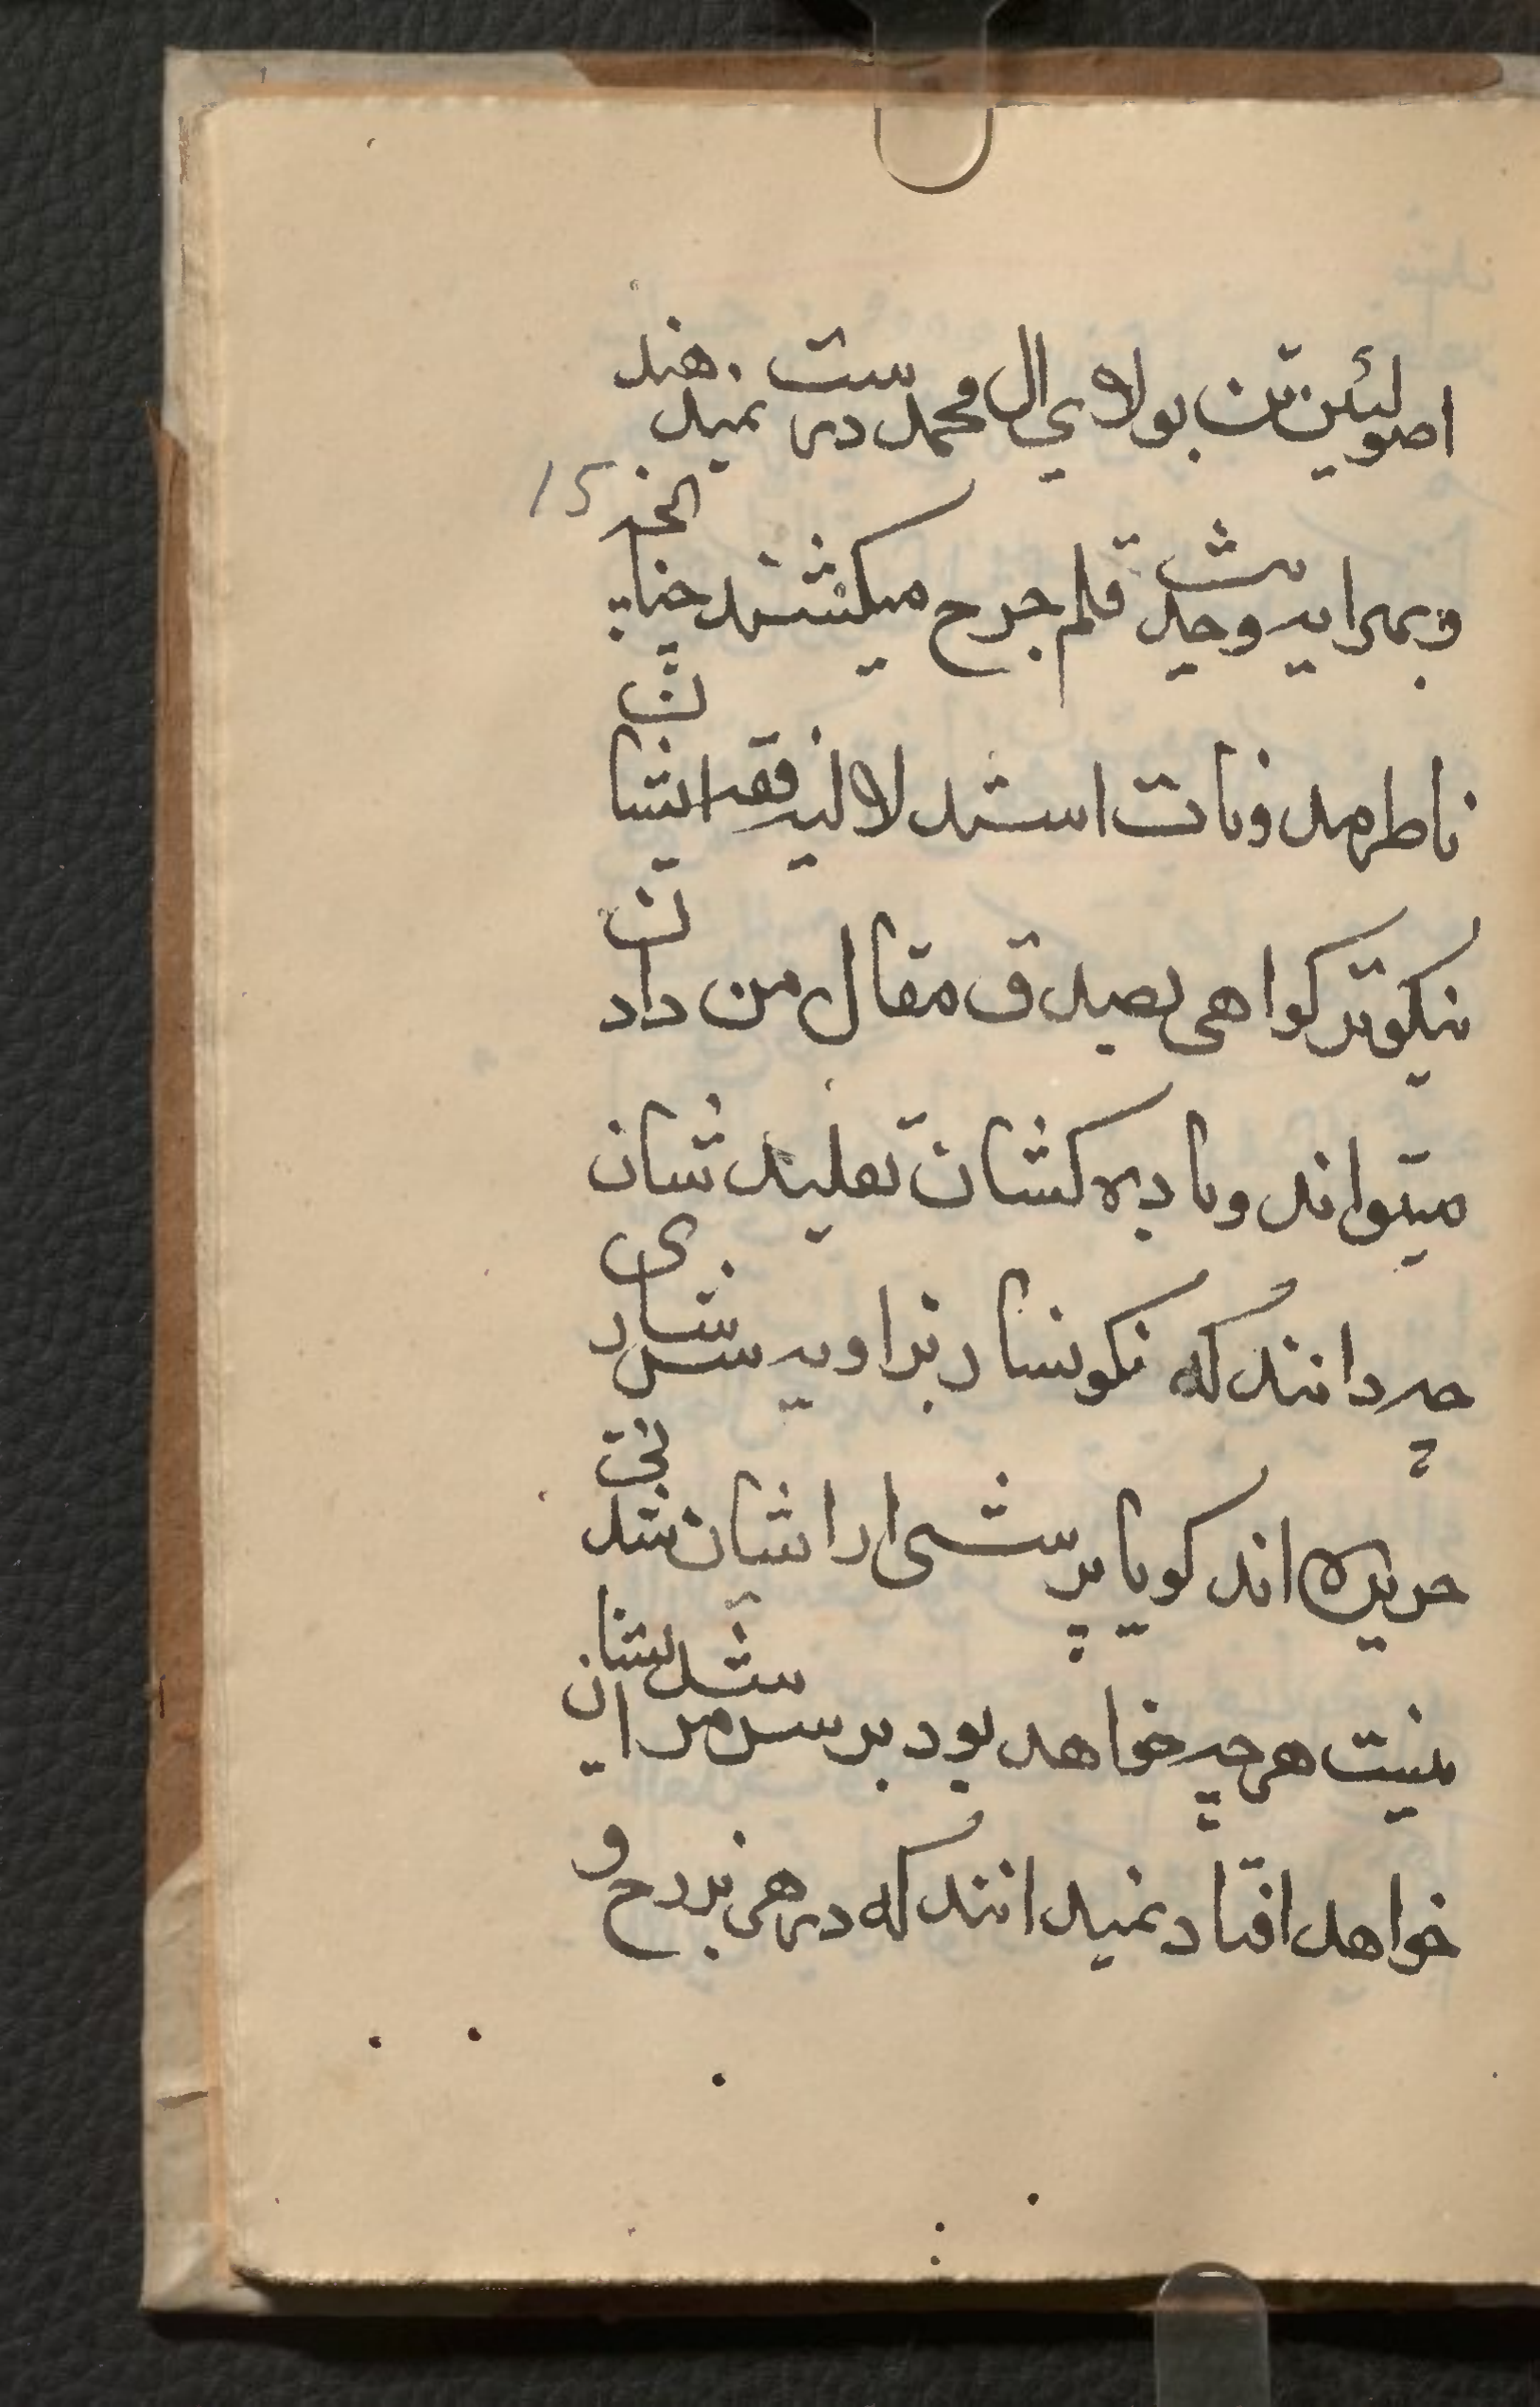 اصولئین تن بولای ال محمد در ست نمیدهند
و بمرایه وحدیث قلم جرح میکشند چنانچه الخ
ناظر مد ونات استدلالیه فقه ایشان
نیکوتر کواهی بصدق مقال من دادن
میتواند وبادیه کشان تقلید شان
چه دانند که نکونسار بزاویه سرشاری
خزیده اند کویا پرسشی ازایشان شدنی
نیست هرچه خواهد بود بر سر مرشد ایشان
خواهد افتاد نمیدانند که در هر برزخ و
15